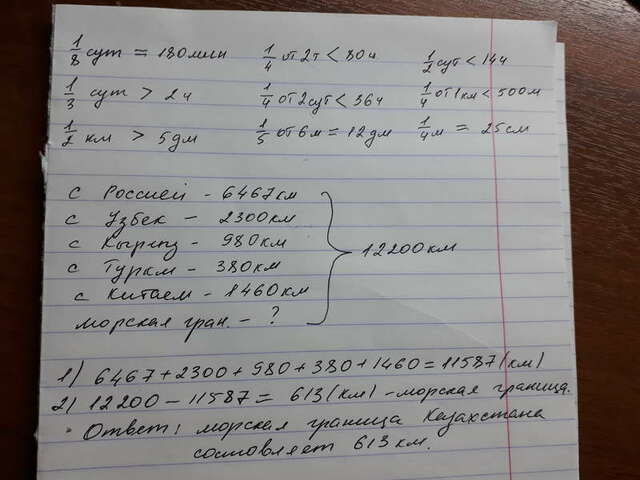 1/8 сут = 180 мин 1/4 от 2т < 80ч 1/2 сут < 14ч
1/3 сут > 2ч 1/4 от 2 сут < 36ч 1/4 от 1км < 500м
1/2 км > 5дм 1/5 от 6м = 12дм 1/4 м = 25см
с Россией - 6467км
с Узбек - 2300км
с Кыргыз - 980км 12200км
с Туркм - 380км
с Китаем - 1460км
морская гран. - ?
1) 6467+2300+980+380+1460=11587(км)
2) 12200-11587=613(км)-морская граница.
Ответ: морская граница Казахстана
составляет 613 км.